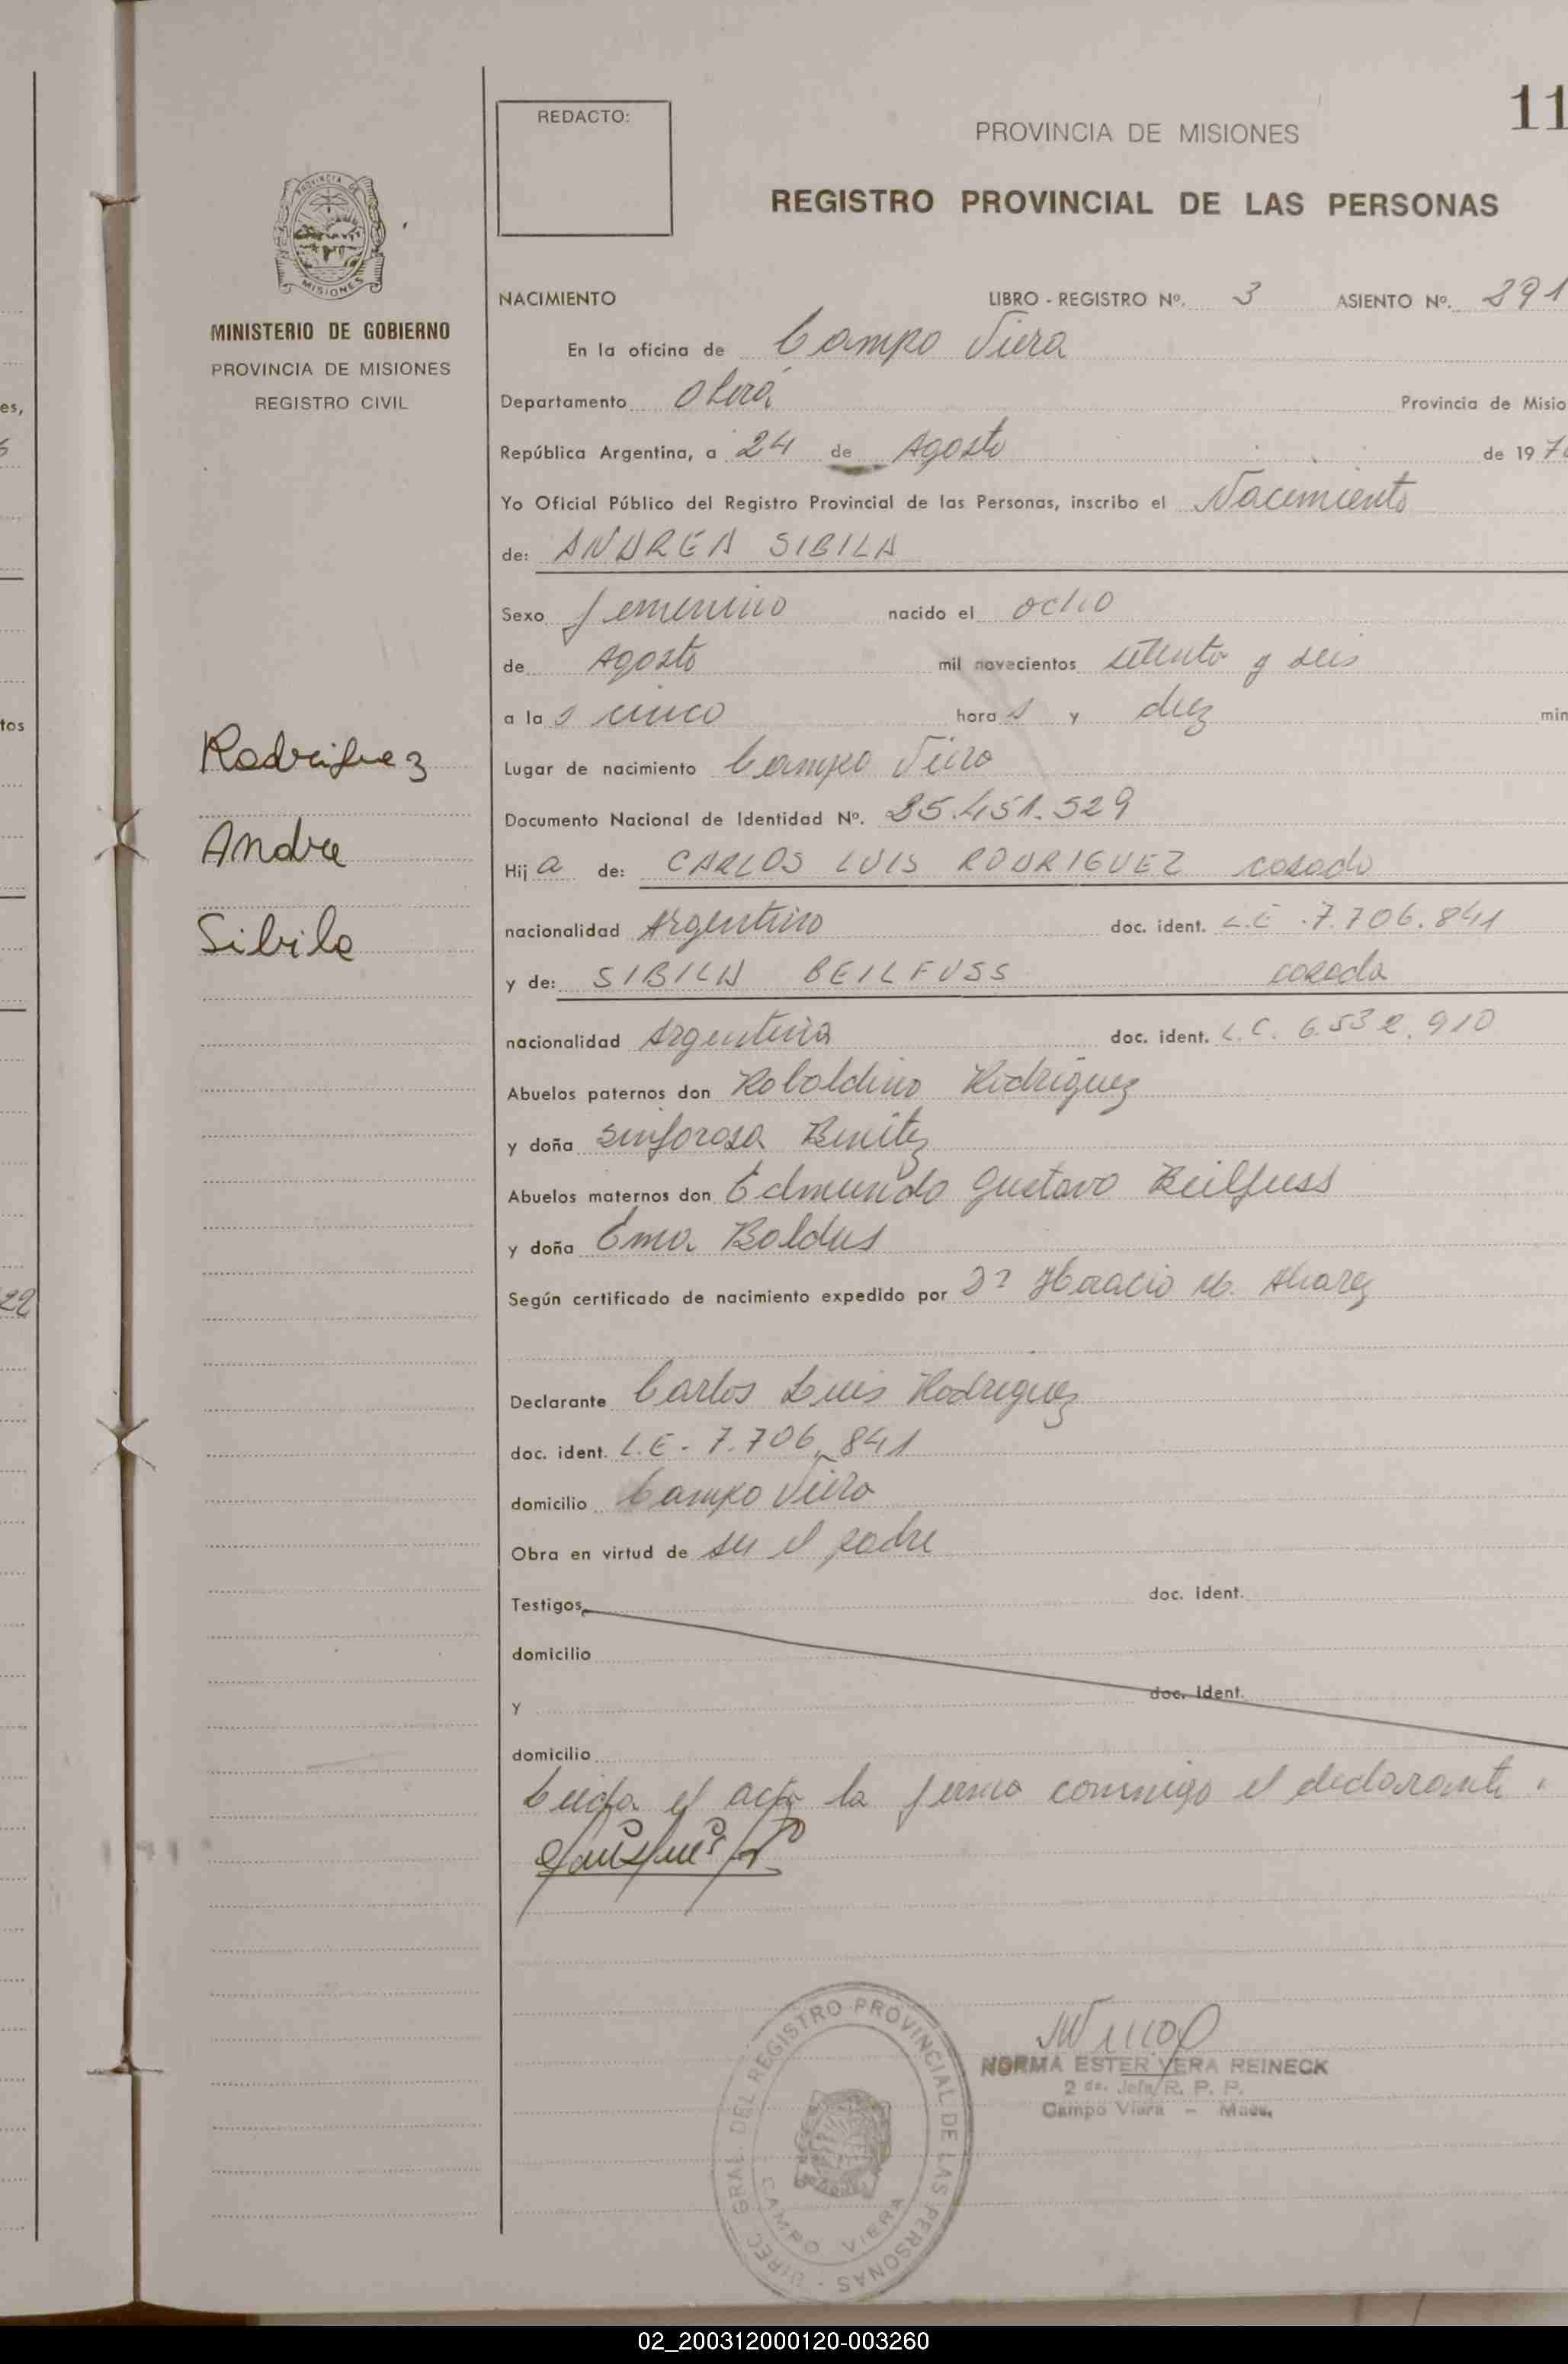 11
REDACTO:
PROVINCIA DE MISIONES
REGISTRO PROVINCIAL DE LAS PERSONAS
PROVINCIA DE
MISIONES
MINISTERIO DE GOBIERNO
PROVINCIA DE MISIONES
REGISTRO CIVIL
NACIMIENTO LIBRO - REGISTRO Nº. 3 ASIENTO Nº. 291
En la oficina de Campo Viera
Departamento Oberá Provincia de Misio
República Argentina, a 24 de Agosto de 19 7
Yo Oficial Público del Registro Provincial de las Personas, inscribo el Nacimiento
de: ANDREA SIBILA
Sexo femenino nacido el ocho
de Agosto mil novecientos setenta y seis
a la s cinco hora s y diez min
Lugar de nacimiento Campo Viera
Documento Nacional de Identidad Nº. 25.451.529
Hij a de: CARLOS LUIS RODRIGUEZ casado
nacionalidad Argentino doc. ident. L.E. 7.706.841
y de: SIBILA BEILFUSS casada
nacionalidad Argentina doc. ident. L.C. 6.532.910
Abuelos paternos don Robaldino Rodriguez
y doña Sinforosa Benitez
Abuelos maternos don Edmundo Gustavo Beilfuss
y doña Ema Baldus
Según certificado de nacimiento expedido por Dr Horacio M. Alvarez
Declarante Carlos Luis Rodriguez
doc. ident. L.E. 7.706.841
domicilio Campo Viera
Obra en virtud de ser el padre
Testigos doc. ident.
domicilio
y doc. ident.
domicilio
Leida el acta la firma conmigo el declarante.
Rodriguez
Andrea
Sibila
es,
tos
22
DIREC. GRAL. DEL REGISTRO PROVINCIAL DE LAS PERSONAS
CAMPO VIERA
NORMA ESTER VERA REINECK
2 da. Jefa R. P. P.
Campo Viera - Mnes.
02_200312000120-003260